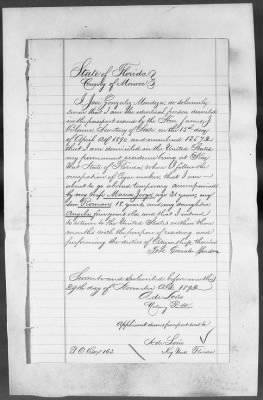 State of Florida
County of Monroe
I, José Gonzalez Mendoza, do solemnly
swear that I am the identical person described
in the passport issued by the Hon. James G
Blaine Secretary of State on the 15th day
of April A.D. 1892 and numbered
that I am domiciled in the United States
my permanent residence being at Key
West State of Florida, where I follow the
occupation of Cigar maker; that I am
about to go abroad temporarily accompanied
by my wife Maria Jorge, aged 31 years; my
son Roman 12 years and my daughter
Angela, five years old, and that I intend
to return to the United States within three
months with the purpose of residing and
performing the duties of Citizenship therein
José
Sworn to and subscribed before me this
29th day of November A.D. 1892
A de Lono
Notary Public
Applicant desires passport sent to
A de Lono
P.O. Box 163. Key West Florida